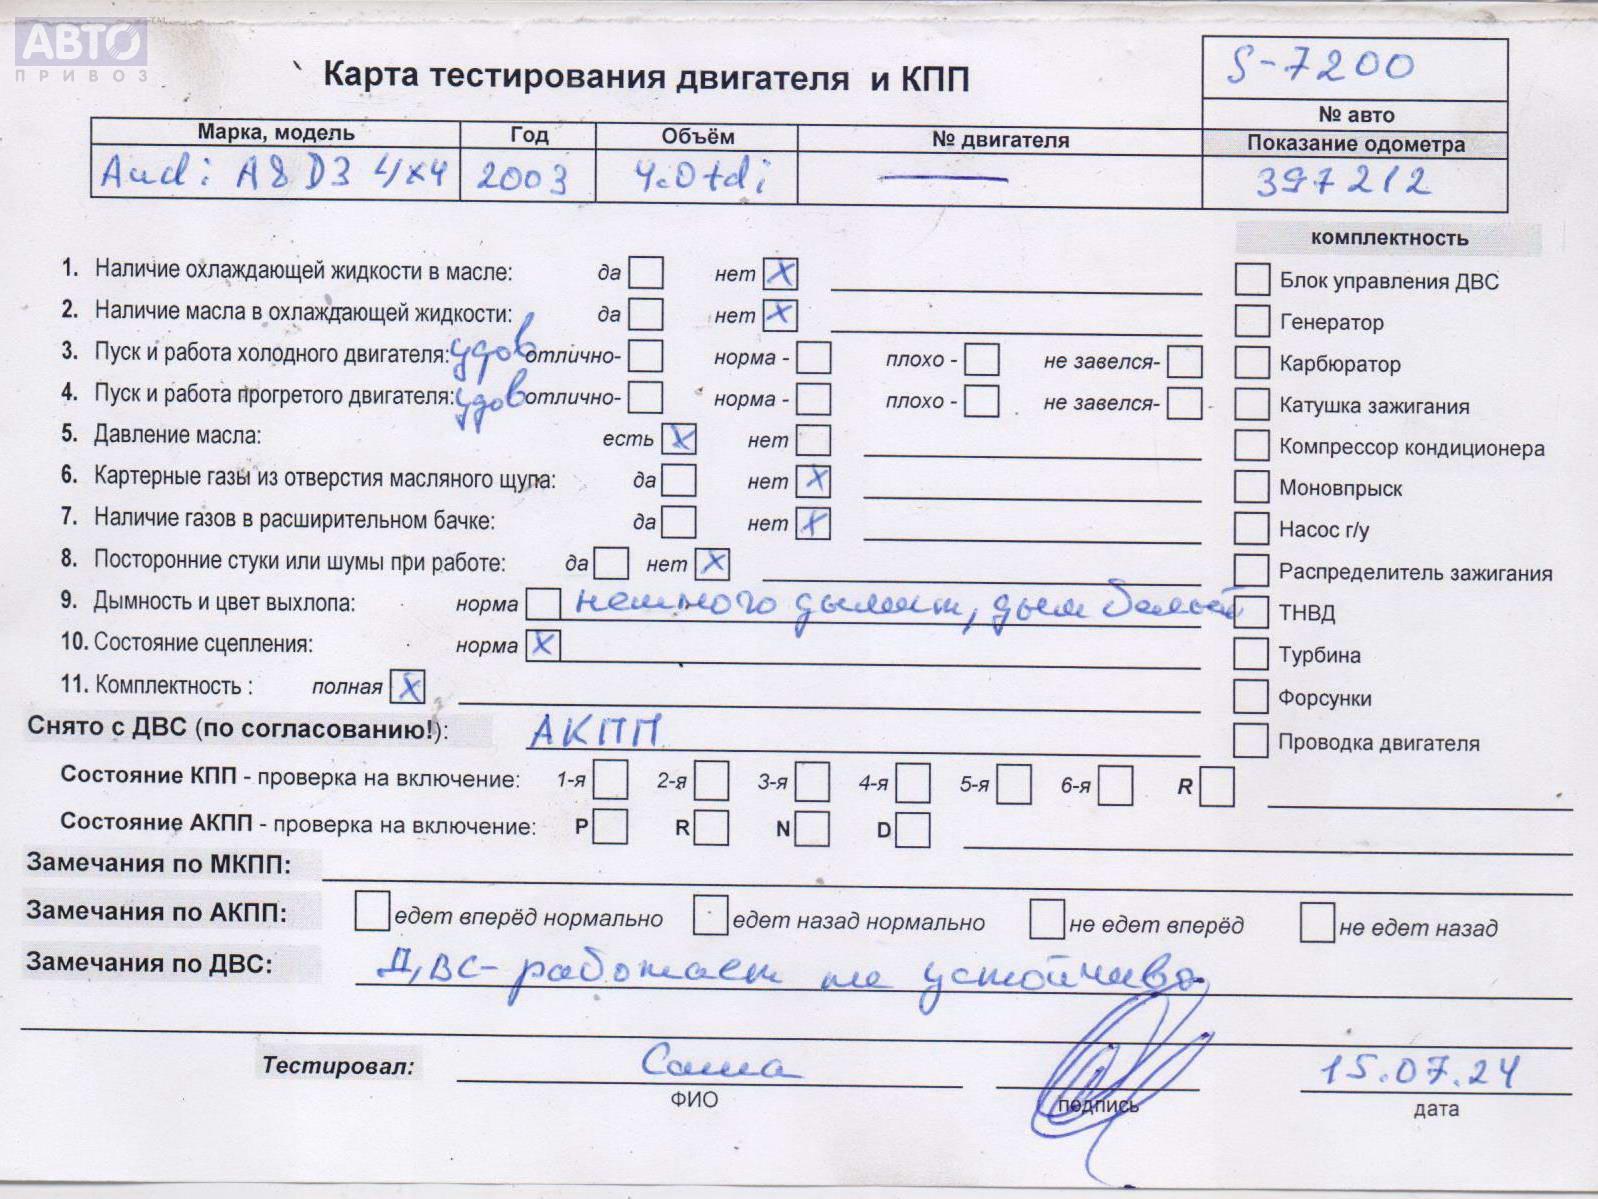 АВТО
ПРИВОЗ
Карта тестирования двигателя и КПП
S-7200
№ авто
Марка, модель Год Объём № двигателя Показание одометра
Audi A8 D3 4x4 2003 4.0tdi — 397212
комплектность
1. Наличие охлаждающей жидкости в масле: да нет X
Блок управления ДВС
2. Наличие масла в охлаждающей жидкости: да нет X
Генератор
3. Пуск и работа холодного двигателя: удов отлично- норма - плохо - не завелся-
Карбюратор
4. Пуск и работа прогретого двигателя: удов отлично- норма - плохо - не завелся-
Катушка зажигания
5. Давление масла: есть X нет
Компрессор кондиционера
6. Картерные газы из отверстия масляного щупа: да нет X
Моновпрыск
7. Наличие газов в расширительном бачке: да нет X
Насос г/у
8. Посторонние стуки или шумы при работе: да нет X
Распределитель зажигания
9. Дымность и цвет выхлопа: норма немного дымит, дым белый
ТНВД
10. Состояние сцепления: норма X
Турбина
11. Комплектность : полная X
Форсунки
Снято с ДВС (по согласованию!): АКПП
Проводка двигателя
Состояние КПП - проверка на включение: 1-я 2-я 3-я 4-я 5-я 6-я R
Состояние АКПП - проверка на включение: P R N D
Замечания по МКПП:
Замечания по АКПП: едет вперёд нормально едет назад нормально не едет вперёд не едет назад
Замечания по ДВС: ДВС-работает не устойчиво
Тестировал: Саша 15.07.24
ФИО подпись дата